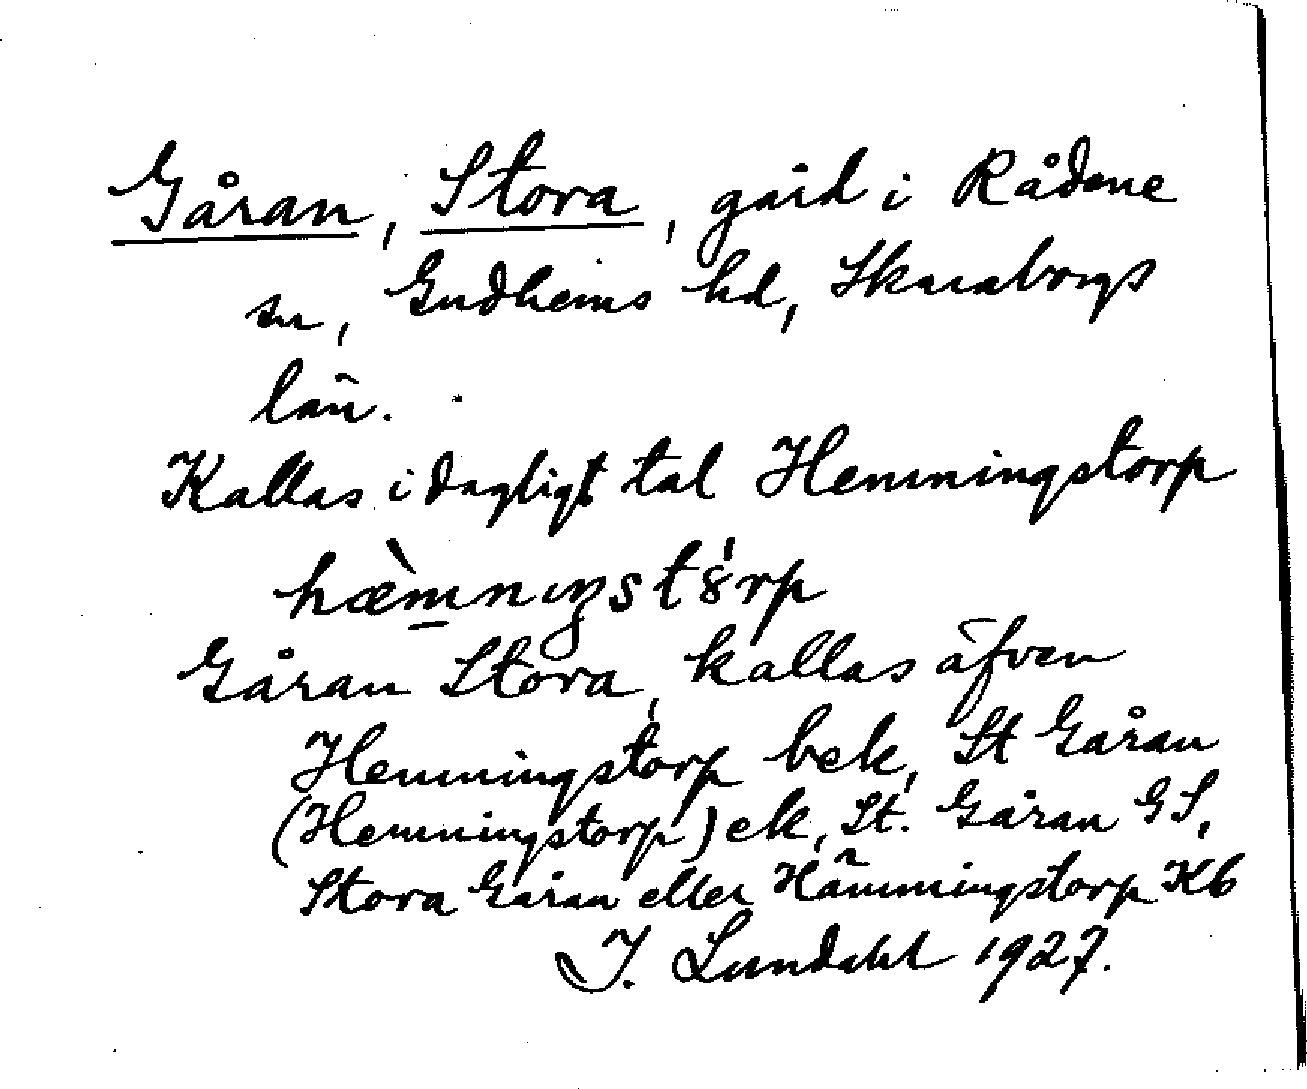 Gåran, Stora, gård i Rådene
sn, Gudhems hd, Skaraborgs
län.
Kallas i dagligt tal Hemmingstorp
hæ̀m̲nıŋst8́rp
Gåran Stora, kallas äfven
Hemmingstorp bek, St Gåran
(Hemmingstorp) ek, St. Gåran GS,
Stora Gåran eller Hämmingstorp Kb
I. Lundahl 1927.